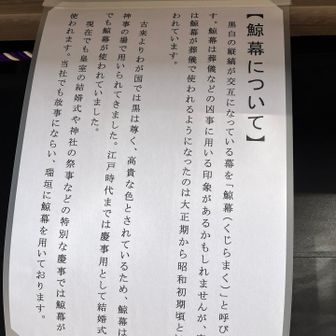 【鯨幕について】
黒白の縦縞が交互になっている幕を「鯨幕（くじらまく）」と呼び
す。鯨幕は葬儀などの凶事に用いる印象があるかもしれませんが、
は鯨幕が葬儀で使われるようになったのは大正期から昭和初期頃と
われています。
古来よりわが国では黒は尊く、高貴な色とされているため、鯨幕は
神事の場で用いられてきました。江戸時代までは慶事用として結婚式
でも鯨幕が使われていました。
現在でも皇室の結婚式や神社の祭事などの特別な慶事では鯨幕が
使われます。当社でも故事にならい、瑞垣に鯨幕を用いております。